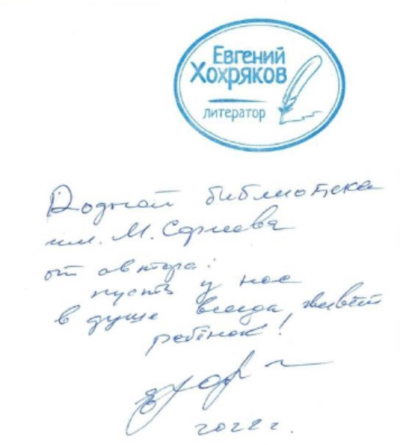 Евгений
Хохряков
литератор
Родной библиотека
им. М. Сергеева
от автора:
пусть у нас
в душе всегда живёт
ребёнок!
2022г.